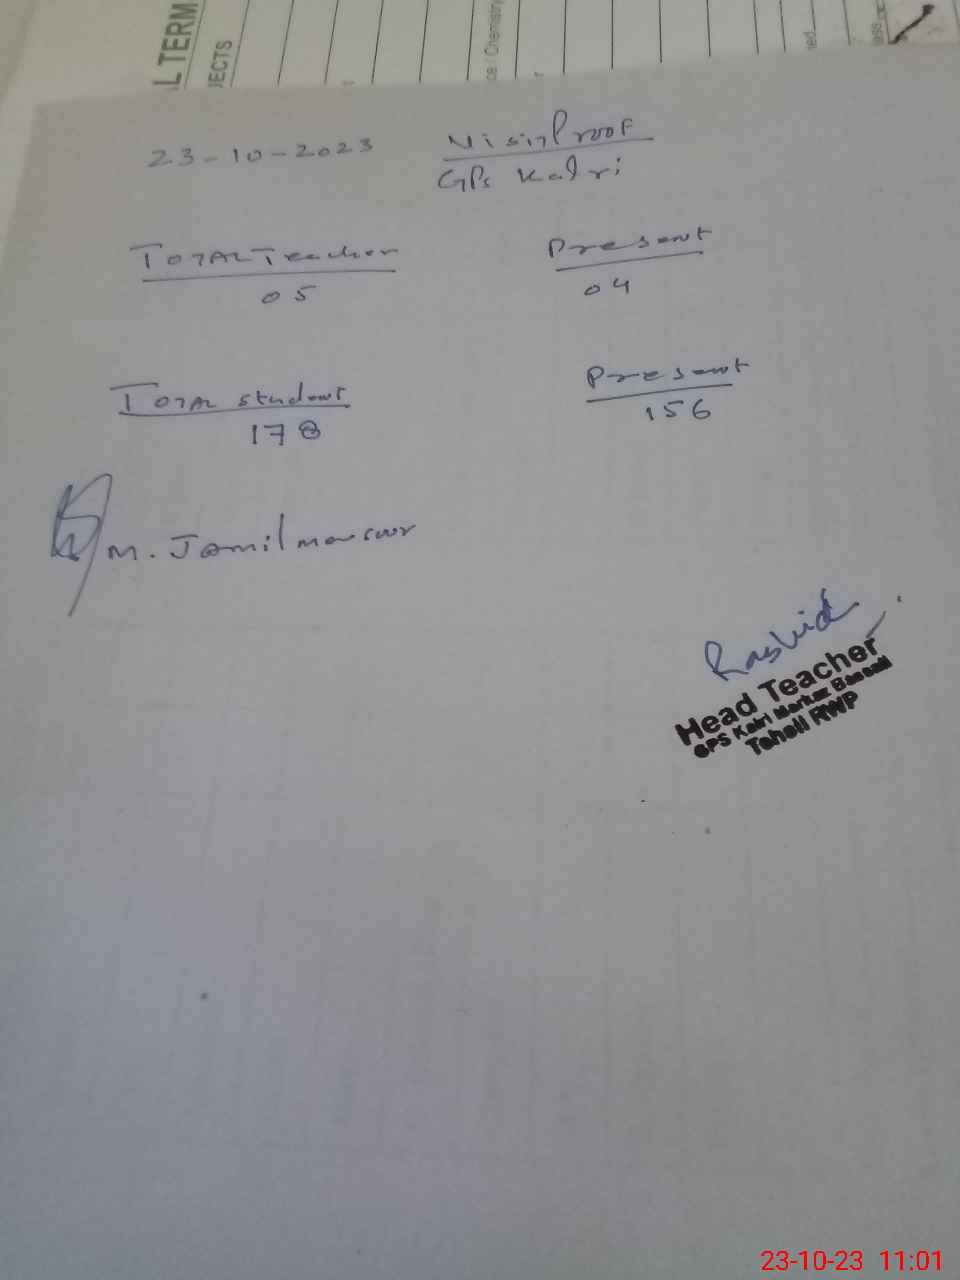 L TERM
JECTS
ce / Chemistry
23-10-2023 Visit Proof
GPs Kalri
TOTAL Teacher Present
05 04
TOTAL student Present
178 156
M. Jamil mansoor
Rashid
Head Teacher
GPS Kalri Markaz
Tehsil RWP
23-10-23 11:01